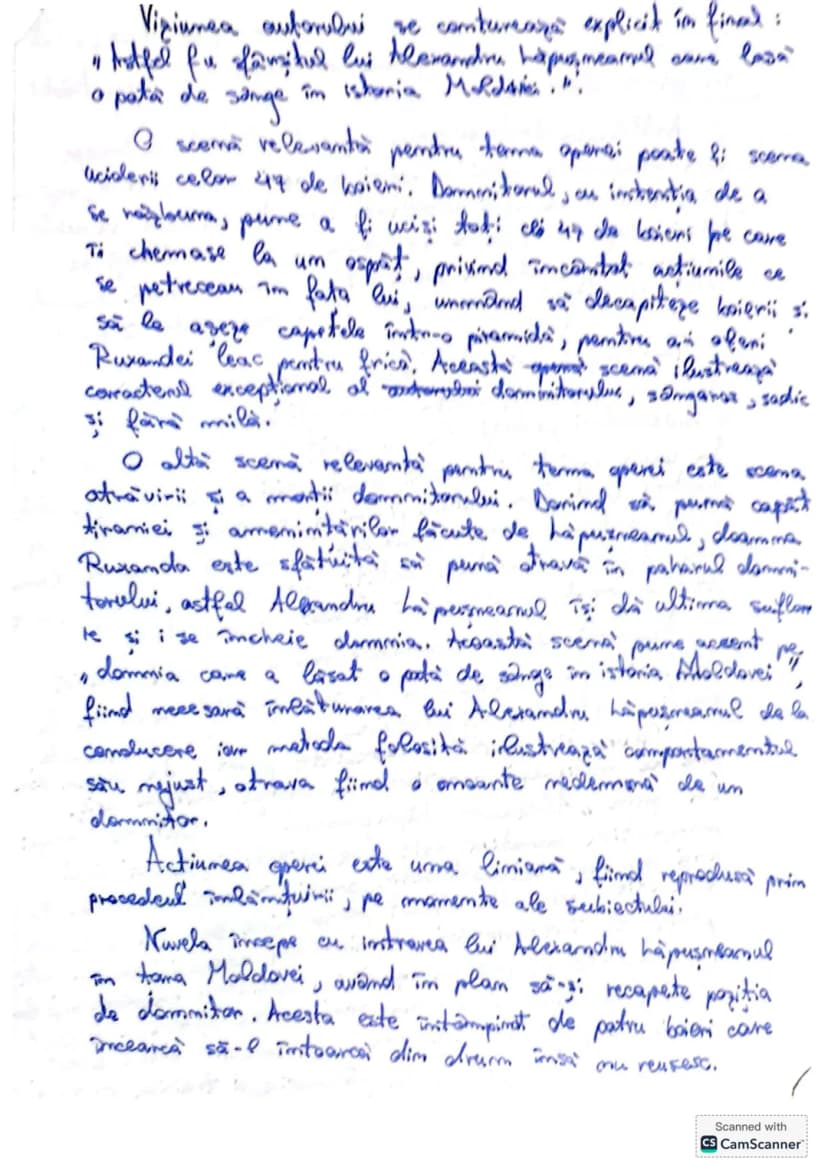 Viziunea autorului se conturează explicit în final :
„Astfel fu sfârșitul lui Alexandru Lăpușneanul care lasă
o pată de sânge în istoria Moldaviei.".
O scenă relevantă pentru tema operei poate fi scena
uciderii celor 47 de boieri. Domnitorul, cu intenția de a
se răzbuna, pune a fi uciși toți cei 47 de boieri pe care
îi chemase la un ospăț, privind încântat acțiunile ce
se petreceau în fața lui, urmând să decapiteze boierii și
să le așeze capetele într-o piramidă, pentru a-i oferi
Ruxandei leac pentru frică. Această scenă ilustrează
caracterul excepțional al domnitorului, sângeros, sadic
și fără milă.
O altă scenă relevantă pentru tema operei este scena
otrăvirii și a morții domnitorului. Dorind să pună capăt
tiraniei și amenințărilor făcute de Lăpușneanul, doamna
Ruxanda este sfătuită să pună otravă în paharul domni-
torului, astfel Alexandru Lăpușneanul își dă ultima suflare
și i se încheie domnia. Această scenă pune accent pe
„domnia care a lăsat o pată de sânge în istoria Moldovei",
fiind necesară înlăturarea lui Alexandru Lăpușneanul de la
conducere iar metoda folosită ilustrează comportamentul
său nejust, otrava fiind o moarte nedemnă de un
domnitor.
Acțiunea operei este una liniară, fiind reprodusă prin
procedeul înlănțuirii, pe momente ale subiectului.
Nuvela începe cu intrarea lui Alexandru Lăpușneanul
în țara Moldovei, având în plan să-și recapete poziția
de domnitor. Acesta este întâmpinat de patru boieri care
încearcă să-l întoarcă din drum însă nu reușesc.
Scanned with
CS CamScanner